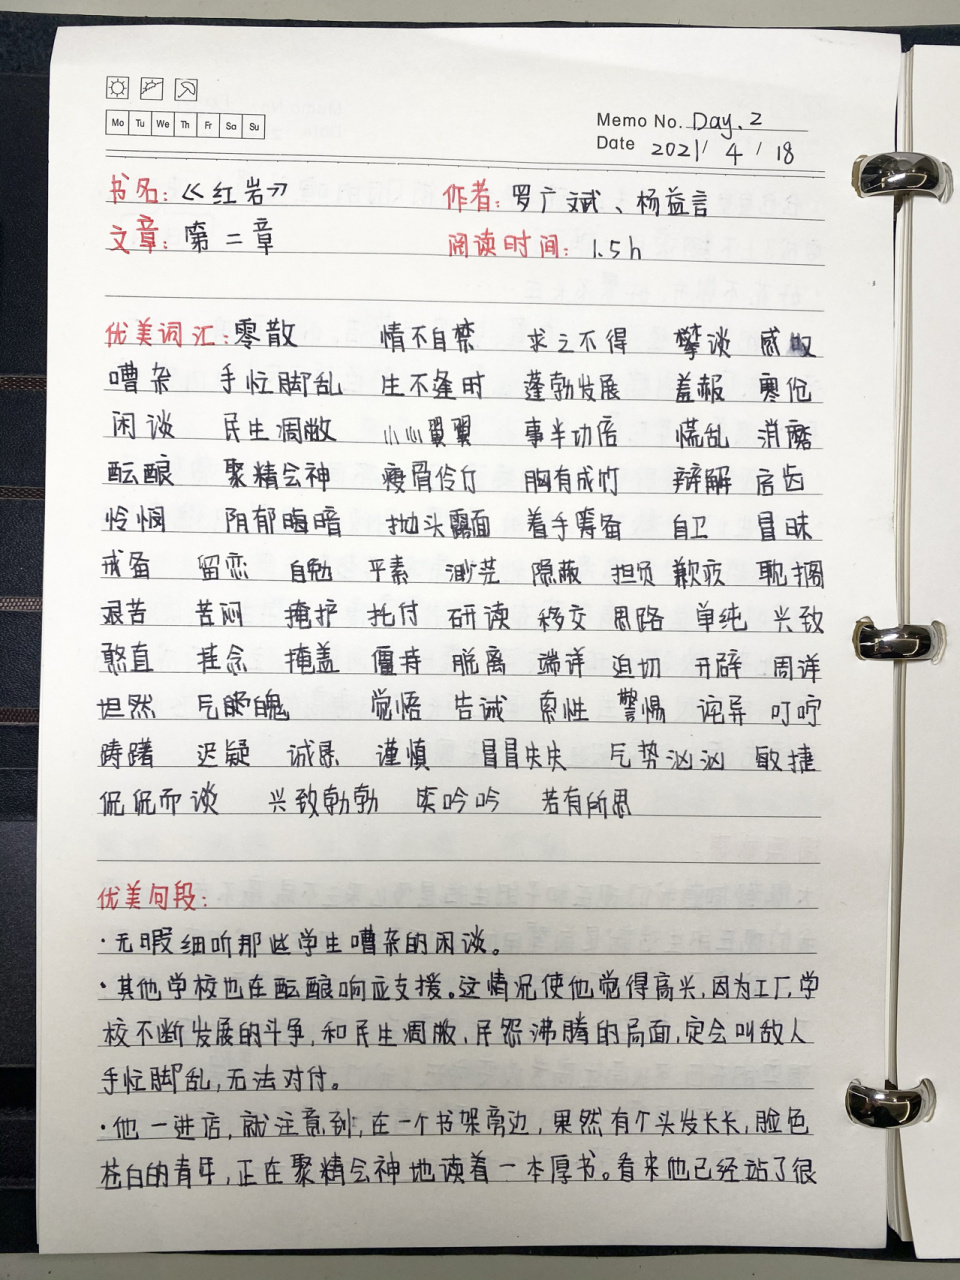 Mo Tu We Th Fr Sa Su
Memo No. Day. 2
Date 2021/ 4 / 18
书名:《红岩》 作者: 罗广斌、杨益言
文章: 第二章 阅读时间: 1.5h
优美词汇: 零散 情不自禁 求之不得 攀谈 感
嘈杂 手忙脚乱 生不逢时 蓬勃发展 盖赧 寒伧
闲谈 民生凋敝 小心翼翼 事半功倍 慌乱 消磨
酝酿 聚精会神 瘦骨伶仃 胸有成竹 辩解 启齿
怜悯 阴郁晦暗 抛头露面 着手筹备 自卫 冒昧
戒备 留恋 自勉 平素 渺茫 隐蔽 担负 歉疚 耽搁
艰苦 苦闷 掩护 托付 研读 移交 思路 单纯 兴致
憨直 挂念 掩盖 僵持 脱离 端详 迫切 开辟 周详
坦然 气魄 觉悟 告诫 索性 警惕 诧异 叮咛
踌躇 迟疑 诚恳 谨慎 冒冒失失 气势汹汹 敏捷
侃侃而谈 兴致勃勃 笑吟吟 若有所思
优美句段:
·无暇细听那些学生嘈杂的闲谈。
·其他学校也在酝酿响应支援。这情况使他觉得高兴,因为工厂、学
校不断发展的斗争,和民生凋敝、民怨沸腾的局面,定会叫敌人
手忙脚乱,无法对付。
·他一进店,就注意到,在一个书架旁边,果然有个头发长长,脸色
苍白的青年,正在聚精会神地读着一本厚书。看来他已经站了很